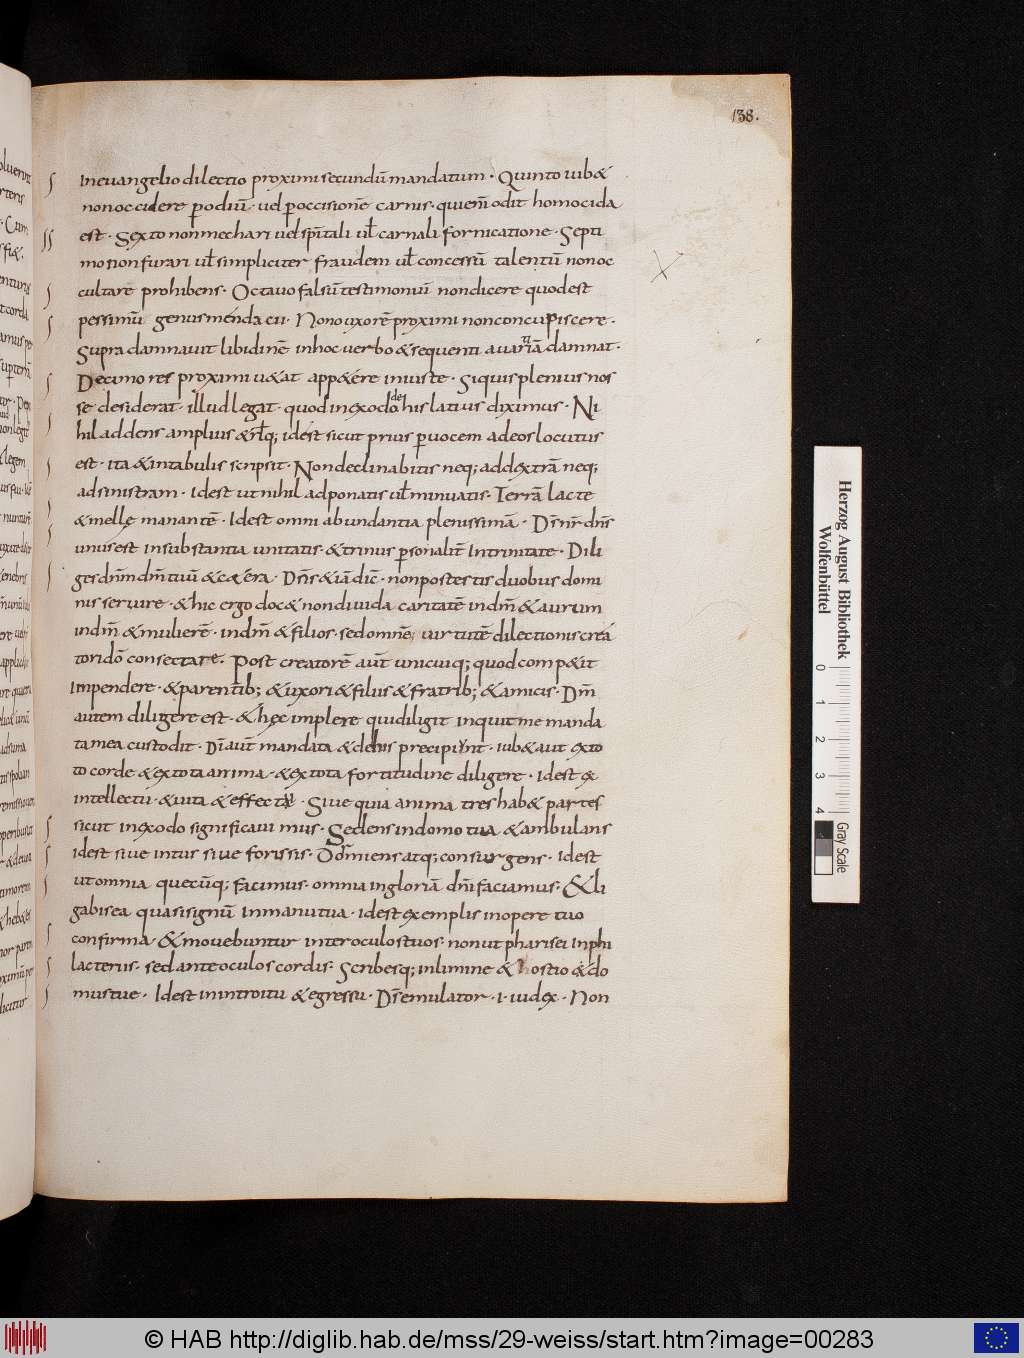 138.
In euangelio dilectio proximi secundū mandatum · Quinto iub&
non occidere p odiū · uel p occisionē carnis · qui eni odit homocida
est · Sexto non mechari uel spitali ul carnali fornicatione · Septi
mo non furari ul simpliciter fraudem ul concessū talentū non oc
cultare prohibens · Octauo falsū testimoniū non dicere quod est
pessimū genus mendacii · Nono uxorē proximi non concupiscere ·
Supra damnauit libidinē in hoc uerbo & sequenti auaritiā damnat ·
Decimo res proximi u&at app&ere iniuste · Si quis plenius nos
se desiderat · illud legat · quod in exodo de his latius diximus · Ni
hil addens amplius & rlq; id est sicut prius p uocem ad eos locutus
est · ita & in tabulis scripsit · Non declinabitis neq; ad dextrā neq;
ad sinistram · Id est ut nihil adponatis ul minuatis · Terrā lacte
& melle manantē · Id est omni abundantia plenissimā · Ds nr dns
unus est in substantia unitatis · & trinus psonalit In trinitate · Dili
ges dnm dm tuū & c&era · Dns & iā dic · non potestis duobus domi
nis seruire · & hic ergo doc& non diuida caritatē in dm & aurum
in dm & mulierē · in dm & filios · sed omnē uirtutē dilectionis crea
tori dō consectare · Post creatorē aut unicuiq; quod comp&it
Impendere · & parentib; & uxori & filiis & fratrib; & amicis · Dm
autem diligere est · & hęc implere qui diligit inquit me manda
ta mea custodit · Di aut mandata & de his precipiunt · iub& aut ex to
to corde & ex tota anima · & ex tota fortitudine diligere · Id est ex
intellectu · & uita & effectu · Siue quia anima tres hab& partes
sicut in exodo significauimus · Sedens in domo tua & ambulans
id est siue intus siue forissis · Dormiens atq; consurgens · Id est
ut omnia quecūq; facimus · omnia in gloriā dni faciamus · & li
gabis ea quasi signū In manu tua · id est exemplis in opere tuo
confirma · & mouebuntur inter oculos tuos · non ut pharisei In phi
lacteriis · sed ante oculos cordis · Scribesq; in limine & hostio & do
mus tue · Id est in introitu & egressu · Ds emulator · i · iudex · Non
Herzog August Bibliothek
Wolfenbüttel
0 1 2 3 4
Gray Scale
© HAB http://diglib.hab.de/mss/29-weiss/start.htm?image=00283